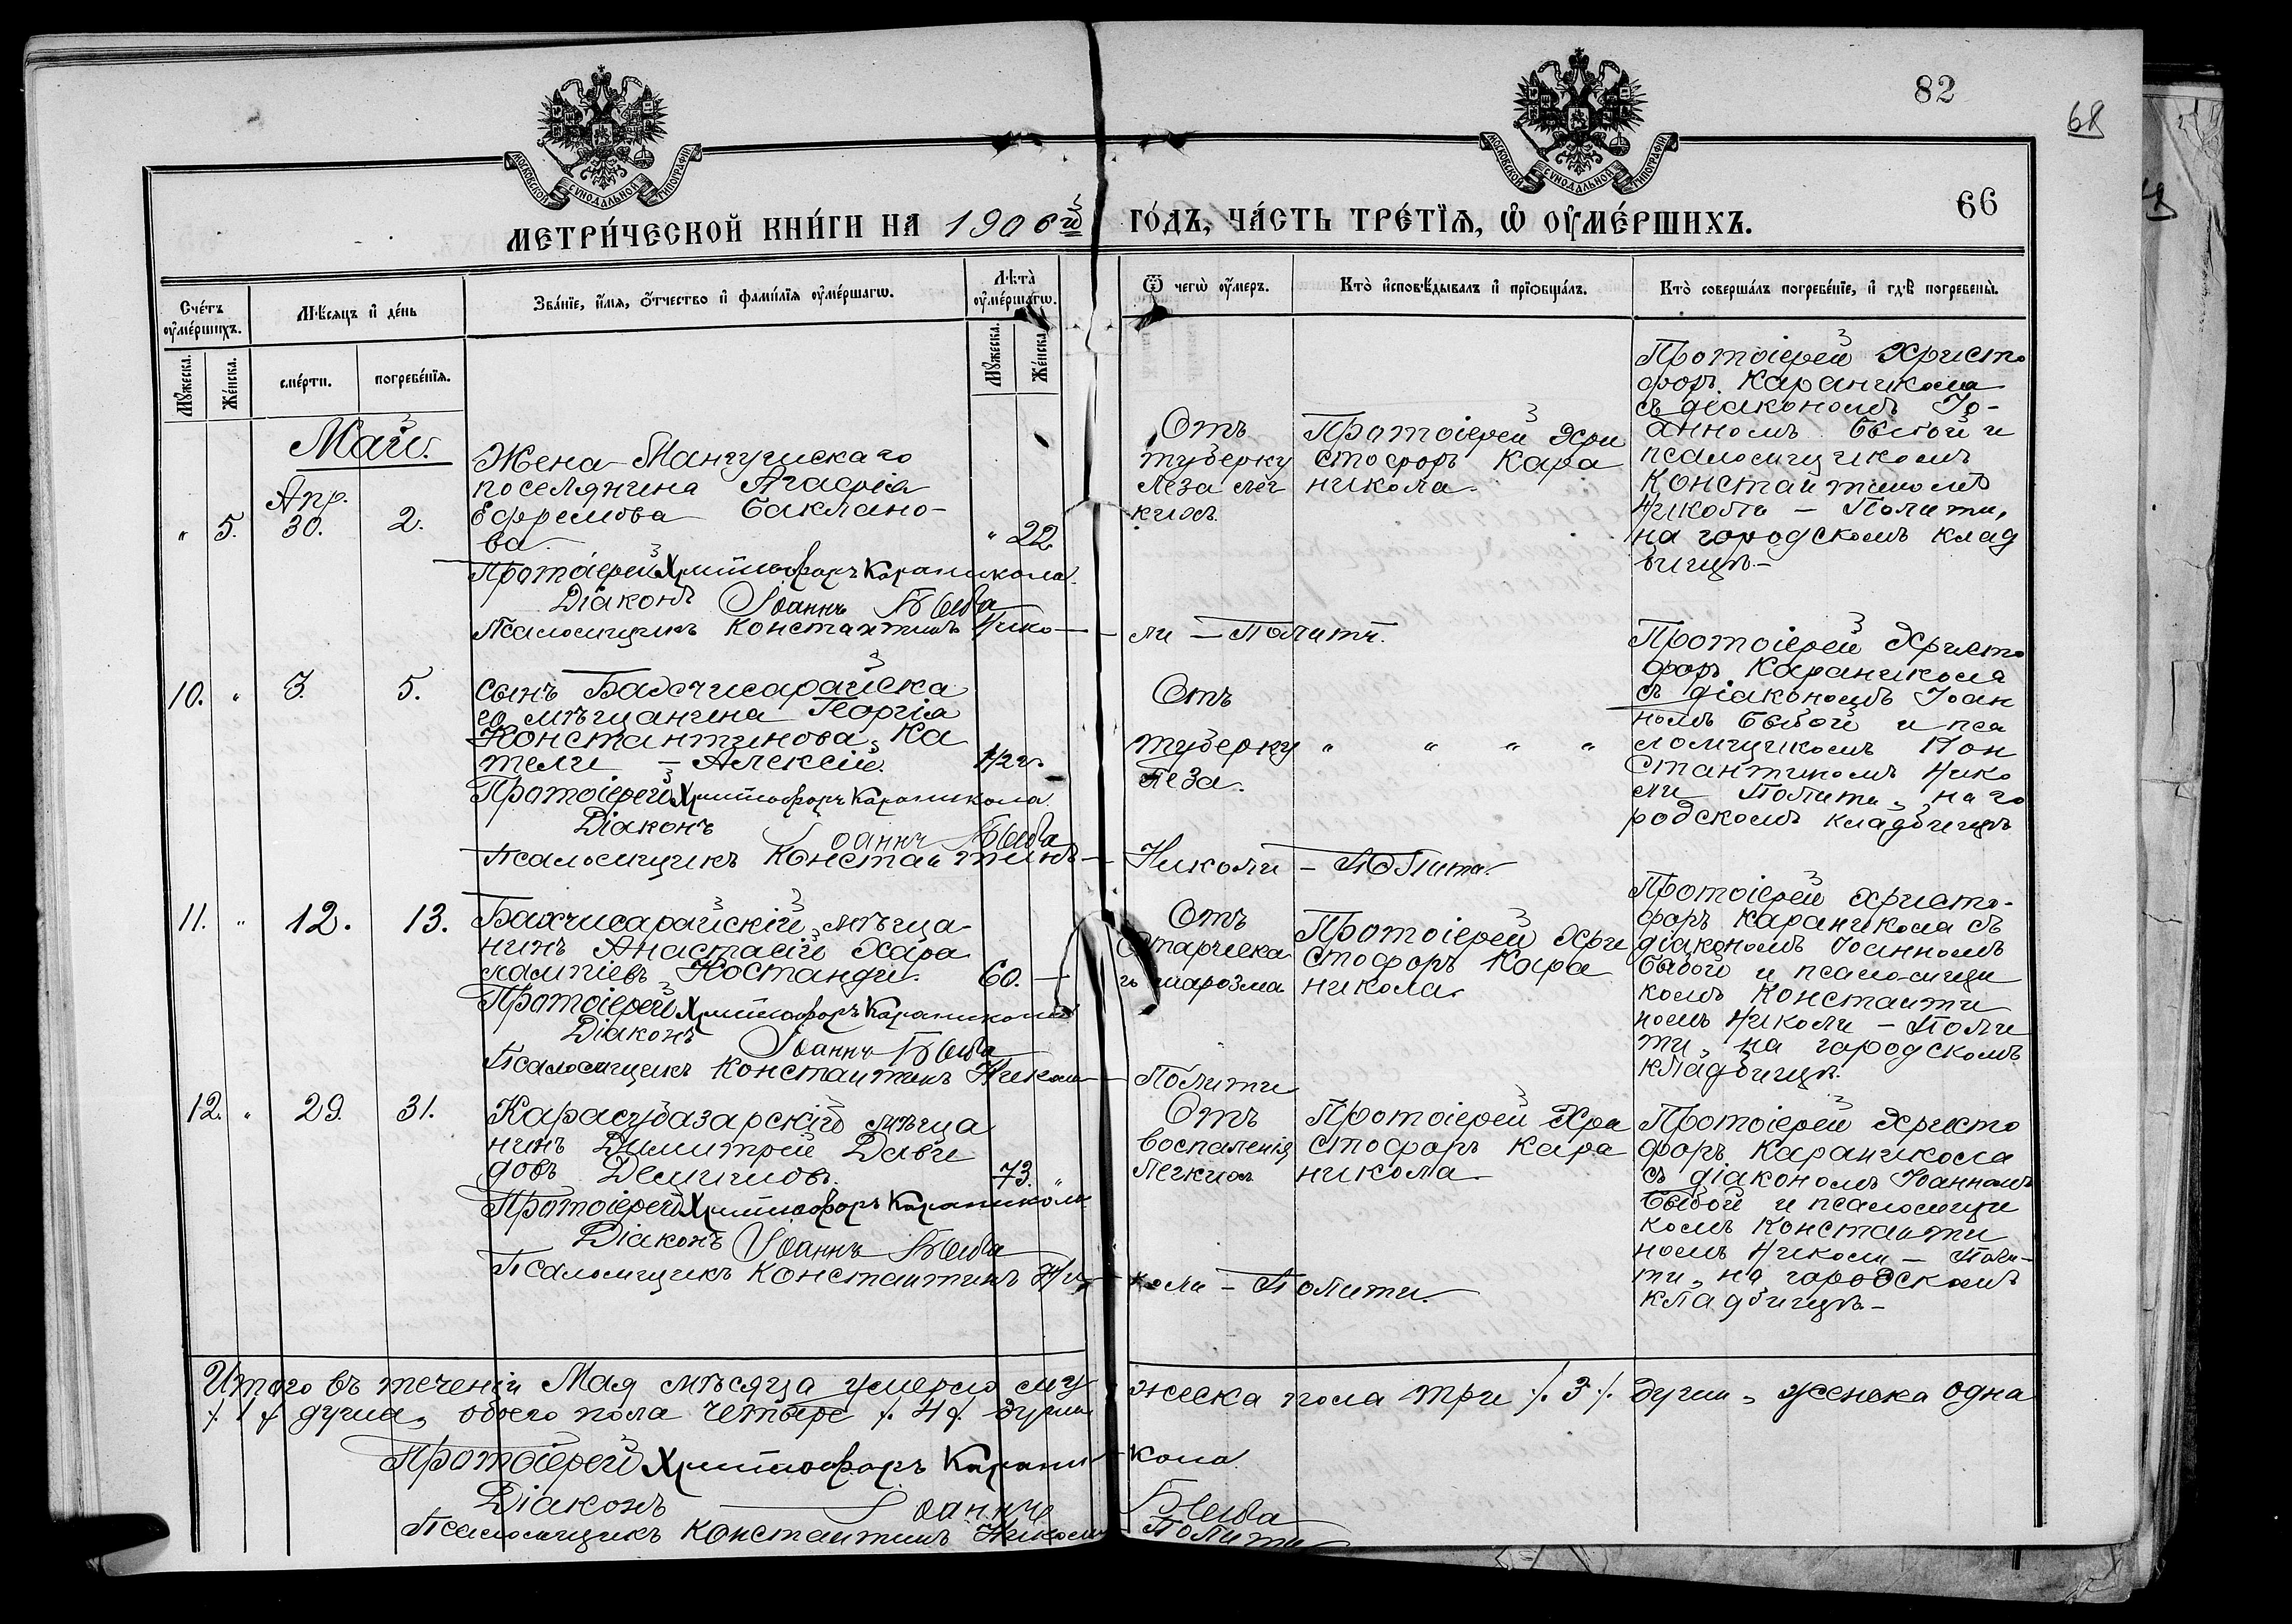 82
68
66
МОСКОВСКОЙ СѴНОДАЛЬНОЙ ТИПОГРАФІИ
МОСКОВСКОЙ СѴНОДАЛЬНОЙ ТИПОГРАФІИ
МЕТРИ́ЧЕСКОЙ КНИ́ГИ НА 1906й ГО́ДЪ, ЧА́СТЬ ТРЕ́ТЇѦ, Ѡ ОУ҆МЕ́РШИХЪ.
Сче́тъ оу҆ме́ршихъ.
Мꙋжеска.
Же́нска.
Мѣ́сяцъ и҆ де́нь
сме́рти.
погребе́нїѧ.
Зва́нїе, и҆́мѧ, ѻ҆́тчество и҆ фами́лїѧ оу҆ме́ршагѡ.
Лѣта̀ оу҆ме́ршагѡ.
Мꙋжеска.
Же́нска.
Ѿ чегѡ̀ оу҆́меръ.
Кто̀ и҆сповѣ́дывалъ и҆ прїѡбща́лъ.
Кто̀ соверша́лъ погребе́нїе, и҆ гдѣ̀ погребены̀.
Май.
" 5.
Апр.
30.
2.
Жена Мангушскаго
поселянина Агафія
Ефремова Баклано-
ва.
" 22
Протоіерей Христофоръ Караникола.
Діаконъ Іоаннъ
Псаломщикъ Константинъ Нико-
ли – Полити.
Отъ
туберку
леза лег
кихъ.
Протоіерей Хри
стофоръ Кара
никола.
Протоіерей Христо
форъ Караникола
съ діакономъ Іо-
анномъ и
псаломщикомъ
Константиномъ
Николи – Полити,
на городскомъ клад
бищѣ –
10. "
3.
5.
Сынъ Бахчисарайска
го мѣщанина Георгія
Константинова Ка
тели – Алексій.
1/2 г.
Протоіерей Христофоръ Караникола.
Діаконъ Іоаннъ
Псаломщикъ Константинъ
Николи – Полити.
Отъ
туберку
леза.
" " " "
Протоіерей Христо
форъ Караникола
съ діакономъ Іоан
номъ и пса
ломщикомъ Кон
стантиномъ Нико
ли Полити, на го
родскомъ кладбищѣ
11. "
12.
13.
Бахчисарайскій мѣща-
нинъ Анастасій Хара
лампіевъ Костанди.
60. –
Протоіерей Христофоръ Караникола
Діаконъ Іоаннъ
Псаломщикъ Константинъ Николи
Полити
Отъ
старческа
го маразма
Протоіерей Хри
стофоръ Кара
никола.
Протоіерей Христо-
форъ Караникола съ
діакономъ Іоанномъ
и псаломщи
комъ Константи
номъ Николи – Поли
ти, на городскомъ
кладбищѣ.
12. "
29.
31.
Карасубазарскій мѣща
нинъ Димитрій Дави
довъ
73. "
Протоіерей Христофоръ Караникола
Діаконъ Іоаннъ
Псаломщикъ Константинъ Ни
коли – Полити.
Отъ
воспаленія
легкихъ
Протоіерей Хри
стофоръ Кара
никола.
Протоіерей Христо
форъ Караникола
съ діакономъ Іоанномъ
и псаломщи
комъ Константи
номъ Николи – Поли-
ти, на городскомъ
кладбищѣ –
Итого въ теченіи Мая мѣсяца умерло му жеска пола три ./. 3 ./. души, женска одна
./. 1 ./. душа, обоего пола четыре ./. 4 ./. души
Протоіерей Христофоръ Карани кола.
Діаконъ Іоаннъ
Псаломщикъ Константинъ Николи Полити